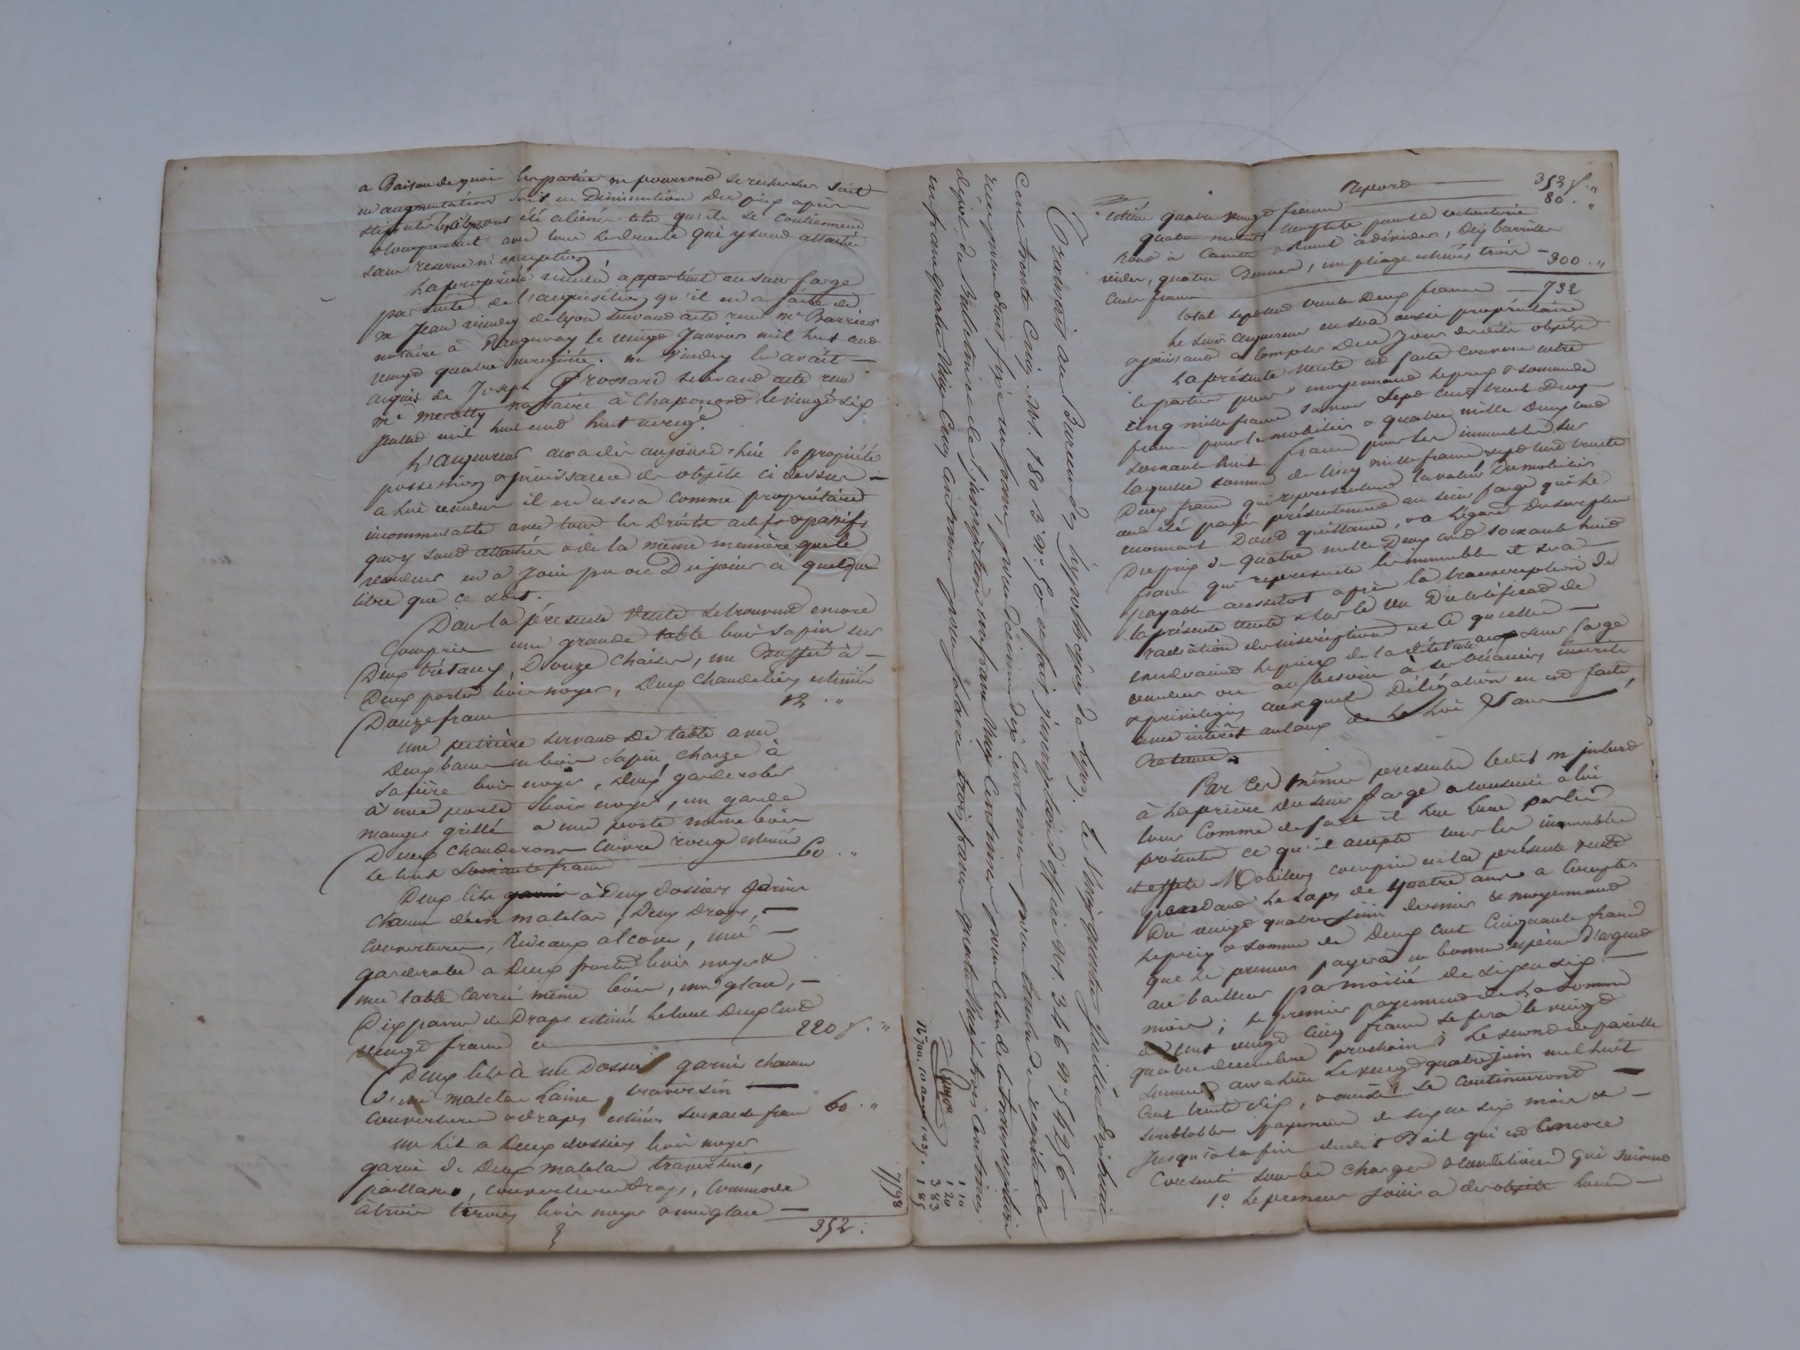 a Raison de quoi les parties ne pourrons se rechercher soit
en augmentation soit en Diminution Du prix après
stipulé
avec tous les droits qui y sont attachés
sans reserve ni exception
La propriété vendue appartient au sieur farge
par suite de l'acquisition qu'il en a faite de
m Jean vindry de lyon suivant acte reçu me Barrier
notaire à le vingt Janvier mil huit cent
vingt quatre enregistré. m vindry les avait
acquis de Joseph Grossard suivant acte reçu
me notaire à Chaponost le vingt six
mil huit cent huit enregé.
L'acquereur aura dès aujourd'hui la propriété
possession & jouissance des objets ci dessus
a lui vendus il en usera comme propriétaire
incommutable avec tous les Droits actifs & passifs
qui y sont attachés & de la même manière que le
vendeur en a joui pu ou Du jouir à quelque
titre que ce soit.
Dans la présente vente se trouvent encore
Compris une grande table bois sapin sur
Deux tréteaux, Douze chaises, un Buffet à
Deux portes bois noyer, Deux chandeliers estimés
Douze francs 12 "
une servant de table avec
Deux bancs en bois sapin, charge à
bois noyer, Deux garderobes
à une porte bois noyer, un garde
manger grillé a une porte même bois
Deux chauderons cuivre rouge estimés
le tout soixante francs 60 "
Deux lits garnis à Deux dossiers garnis
chacun d'un matelas, Deux Draps,
couvertures, Rideaux alcove, une
garderobe a Deux portes bois noyer &
une table carrée même bois, une glace,
Dix paires de Draps estimés le tout Deux Cent
vingt francs ci 220 f "
Deux lits à un Dossier garnis chacun
d'un matelas Laine, traversin
couvertures & draps estimés soixante francs 60 "
un Lit a Deux dossiers bois noyer
garni de Deux matelas traversins,
paillasse, couvertures draps, Commode
à trois tiroirs bois noyer & une glace
352 :
Transcrit au Bureau des hypothèques de Lyon. Le Vingt quatre Juillet Dix huit
Cent trente Cinq, vol. 180 No 50 et fait, l'inscription d'office vol. 346 No 54256
reçu pour droit fixe un franc, pour dixième dix Centimes, pour timbre du registre de
dépôt, du bulletin et de l'inscription un franc Vingt Centimes, pour celui de la transcription
un franc quatre Vingt Cinq Centimes, pour Salaire trois francs quatre Vingt trois Centimes.
1 10
1 20
3 83
1 85
7/98
Report 352 f "
estimé quatre vingt francs 80 "
cents francs 300 "
total sept cent trente Deux francs 732
Le sieur acquereur en sera aussi propriétaire
& jouissant a compter De ce Jour desdits objets
La présente vente est faite Convenue entre
les parties pour & moyennant le prix & somme de
cinq mille francs savoir Sept Cent trente Deux
francs pour le mobilier & quatre mille Deux cent
soixante huit francs pour les immeubles sur
laquelle somme de Cinq mille francs sept cent trente
Deux francs qui représentent la valeur Du mobilier
ont été payés présentement au sieur farge qui le
reconnait Dont quittance, & a l'égard Du surplus
Du prix De quatre mille Deux cent soixante huit
francs qui représente les immeubles il sera
payable aussitot après la transcription de
la présente vente & sur le vu Du certificat de
radiation des inscriptions
vendeur ou au besoin à ses créanciers inscrits
& privilégiés auxquels Délégation en est faite,
avec intérêt au taux de la Loi Sans
Retenue.
Par Ces mêmes presentes ledit m imbert
à la prière du sieur farge a
louer Comme de fait il lui loue partie
présente ce qu'il accepte tous les immeubles
et effets Mobiliers compris en la présente vente
pendant le Laps de quatre ans a Compter
Du vingt quatre juin dernier & moyennant
le prix & somme de Deux cent Cinquante francs
que le preneur payera en bonnes espèces d'argent
au bailleur par moitié de six en six
mois ; le premier payement de la somme
de cent vingt cinq francs se fera le vingt
quatre decembre prochain ; Le second de pareille
somme aura lieu Le vingt quatre juin mil huit
cent trente six, & ainsi Se Continueront
semblables payemens de six en six mois
jusqu'à la fin dudit Bail qui est Encore
Consenti sous les charges & conditions qui suivent
1o Le preneur jouira des objets loués